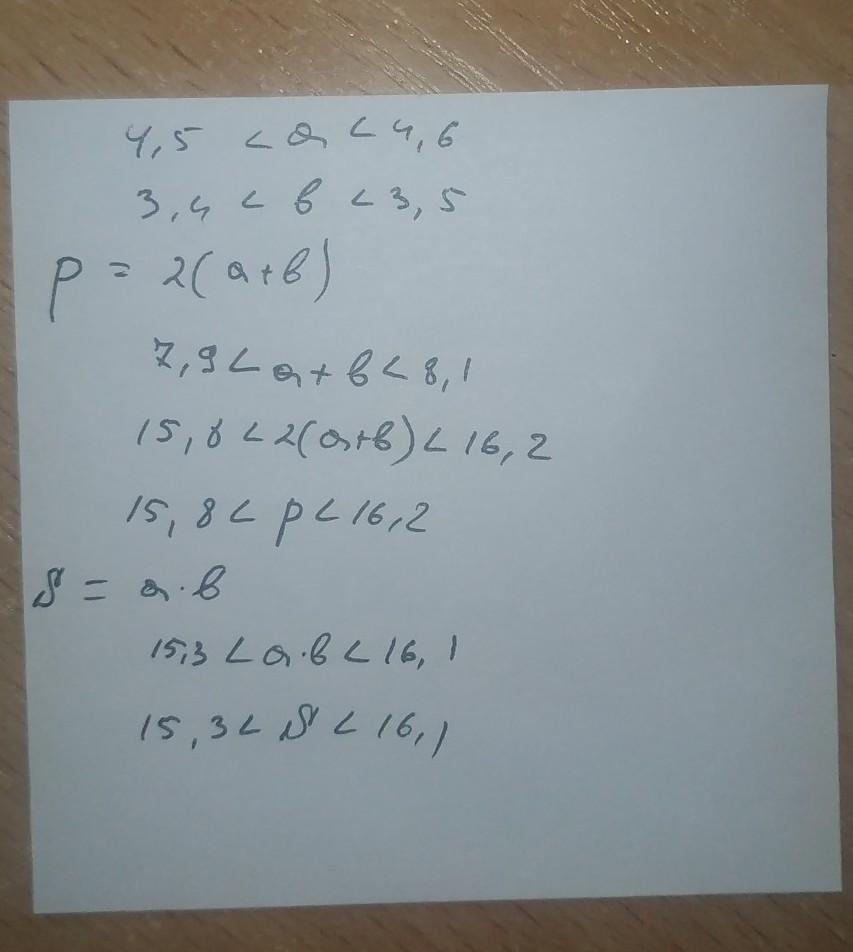 4,5 < a < 4,6
3,4 < b < 3,5
P = 2(a+b)
7,9 < a+b < 8,1
15,8 < 2(a+b) < 16,2
15,8 < p < 16,2
S = a·b
15,3 < a·b < 16,1
15,3 < S < 16,1